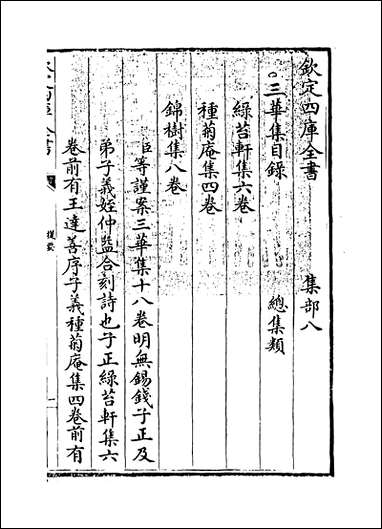 欽定四庫全書　集部八
。三華集目錄　總集類
綠苔軒集六卷
種菊庵集四卷
錦樹集八卷
臣等謹案三華集十八卷明無錫錢子正及
弟子義姪仲益合刻詩也子正綠苔軒集六
卷前有王達善序子義種菊庵集四卷前有
提要
一